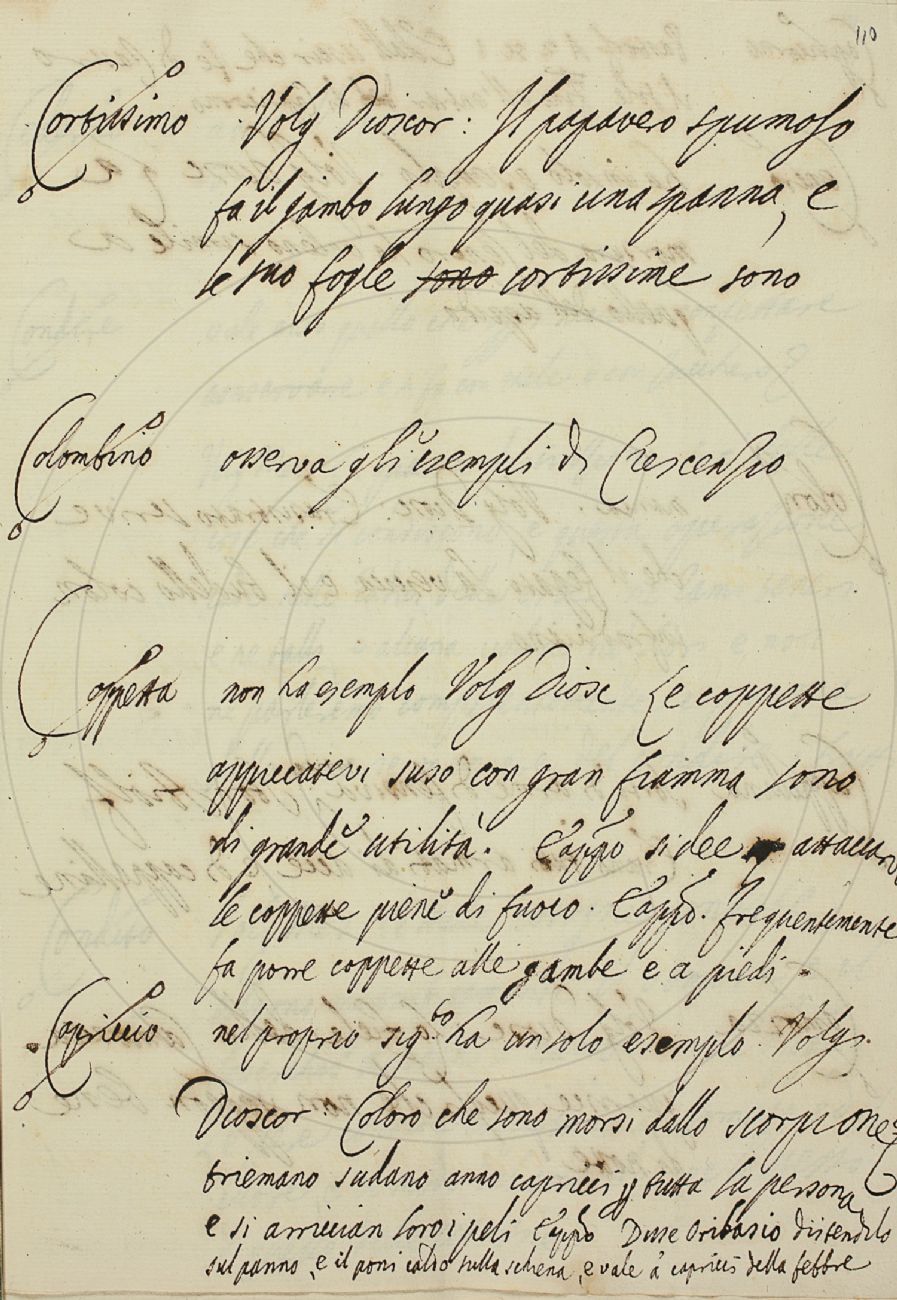 110
Cortissimo Volg Dioscor: Il papavero spumoso
fa il gambo lungo quasi una spanna, e
le suo fogle sono cortissime sono
Colombino osserva gli esempli di Crescenzio
Coppetta non ha esemplo Volg Diosc Le coppette
appiccatevi suso con gran fiamma sono
di grande utilità. E appo si dee attaccare
le coppette piene di fuoco. E appo. frequentemente
fa porre coppette alle gambe e a piedi.
Capriccio nel proprio sig.to ha un solo esemplo. Volg.
Dioscor: Coloro che sono morsi dallo scorpione
triemano sudano anno capricci p tutta la persona
e si arriccian loro i peli E appo Disse Oribasio distendilo
sul panno, e il poni caldo sulla schena, e vale a capricci della febbre